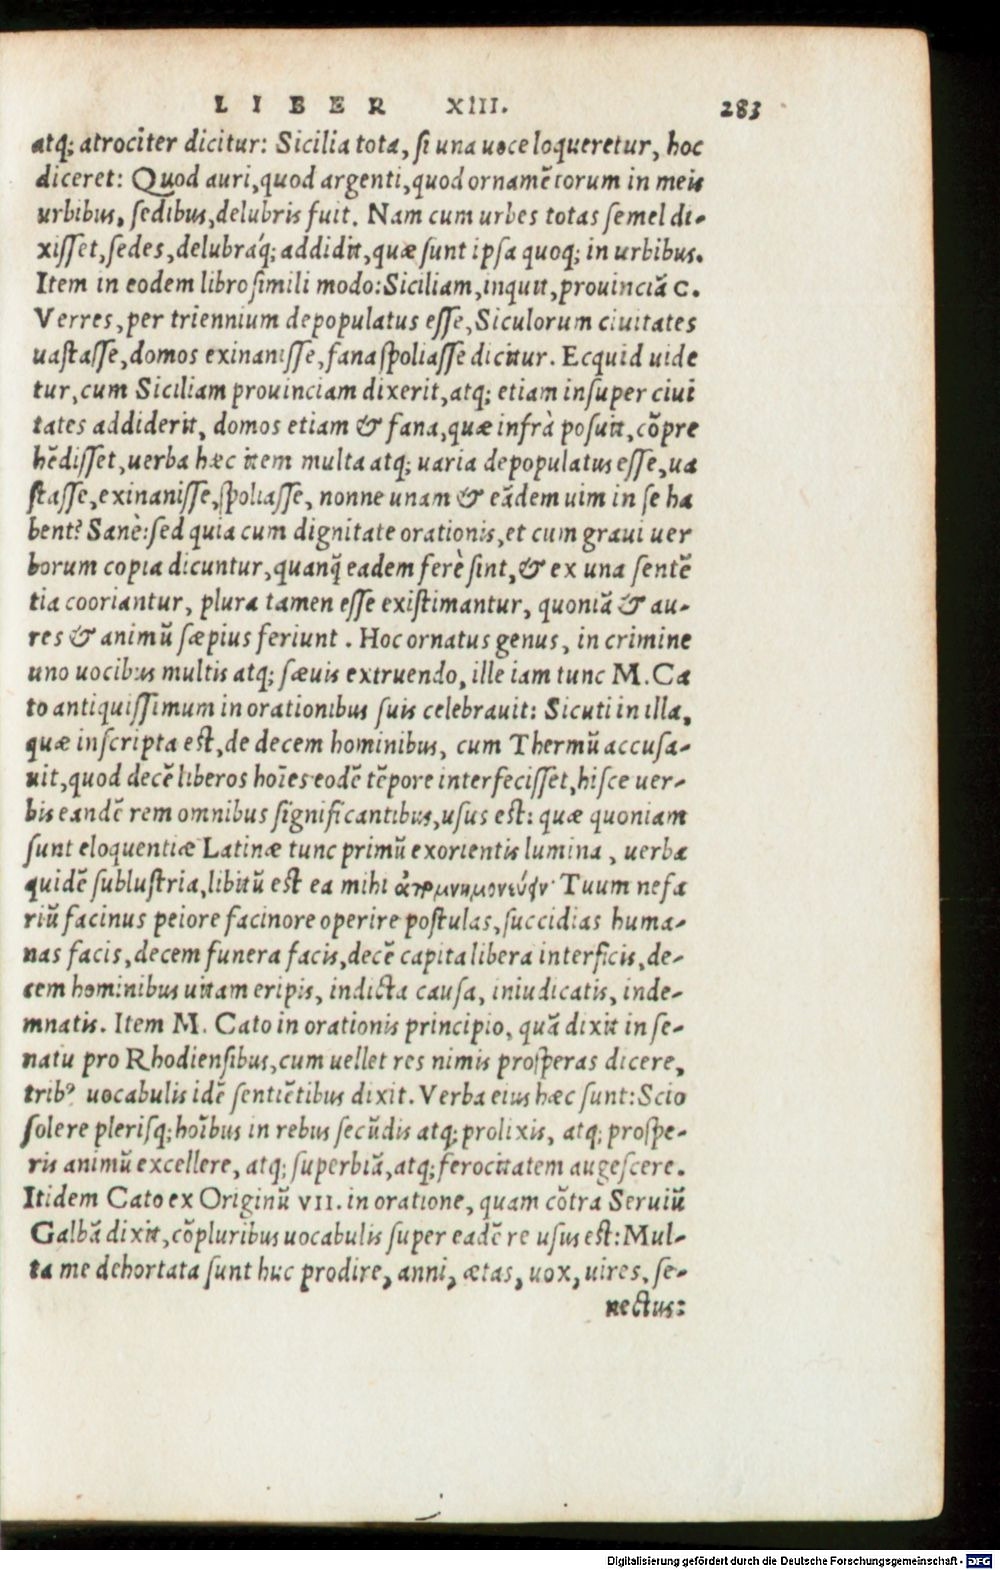 LIBER XIII. 283
atq; atrociter dicitur: Sicilia tota, ſi una uoce loqueretur, hoc
diceret: Quod auri, quod argenti, quod ornamẽtorum in meis
urbibus, ſedibus, delubris fuit. Nam cum urbes totas ſemel di-
xiſſet, ſedes, delubraq́; addidit, quæ ſunt ipſa quoq; in urbibus.
Item in eodem libro ſimili modo: Siciliam, inquit, prouinciã C.
Verres, per triennium depopulatus eſſe, Siculorum ciuitates
uaſtaſſe, domos exinaniſſe, fana ſpoliaſſe dicitur. Ecquid uide
tur, cum Siciliam prouinciam dixerit, atq; etiam inſuper ciui
tates addiderit, domos etiam & fana, quæ infrà poſuit, cõpre
hẽdiſſet, uerba hæc item multa atq; uaria depopulatus eſſe, ua
ſtaſſe, exinaniſſe, ſpoliaſſe, nonne unam & eãdem uim in ſe ha
bent? Sanè: ſed quia cum dignitate orationis, et cum graui uer
borum copia dicuntur, quanq̃ eadem ferè ſint, & ex una ſentẽ
tia cooriantur, plura tamen eſſe exiſtimantur, quoniã & au-
res & animũ ſæpius feriunt. Hoc ornatus genus, in crimine
uno uocibus multis atq; ſæuis extruendo, ille iam tunc M. Ca
to antiquiſſimum in orationibus ſuis celebrauit: Sicuti in illa,
quæ inſcripta eſt, de decem hominibus, cum Thermũ accuſa-
uit, quod decẽ liberos hoĩes eodẽ tẽpore interfeciſſet, hiſce uer-
bis eandẽ rem omnibus ſignificantibus, uſus est: quæ quoniam
ſunt eloquentiæ Latinæ tunc primũ exorientis lumina, uerba
quidẽ ſubluſtria, libitũ eſt ea mihi ἀπομνημονεύειν· Tuum nefa
riũ facinus peiore facinore operire poſtulas, ſuccidias huma-
nas facis, decem funera facis, decẽ capita libera interficis, de-
cem hominibus uitam eripis, indicta cauſa, iniudicatis, inde-
mnatis. Item M. Cato in orationis principio, quã dixit in ſe-
natu pro Rhodienſibus, cum uellet res nimis proſperas dicere,
tribꝰ uocabulis idẽ ſentiẽtibus dixit. Verba eius hæc ſunt: Scio
ſolere pleriſq; hoĩbus in rebus ſecũdis atq; prolixis, atq; proſpe-
ris animũ excellere, atq; ſuperbiã, atq; ferocitatem augeſcere.
Itidem Cato ex Originũ VII. in oratione, quam cõtra Seruiũ
Galbã dixit, cõpluribus uocabulis ſuper eadẽ re uſus eſt: Mul-
ta me dehortata ſunt huc prodire, anni, ætas, uox, uires, ſe-
nectus:
Digitalisierung gefördert durch die Deutsche Forschungsgemeinschaft - DFG